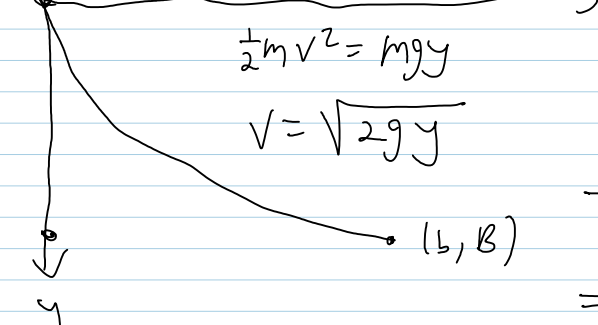 ½mv² = mgy
v = √2gy
(b, B)
y
=